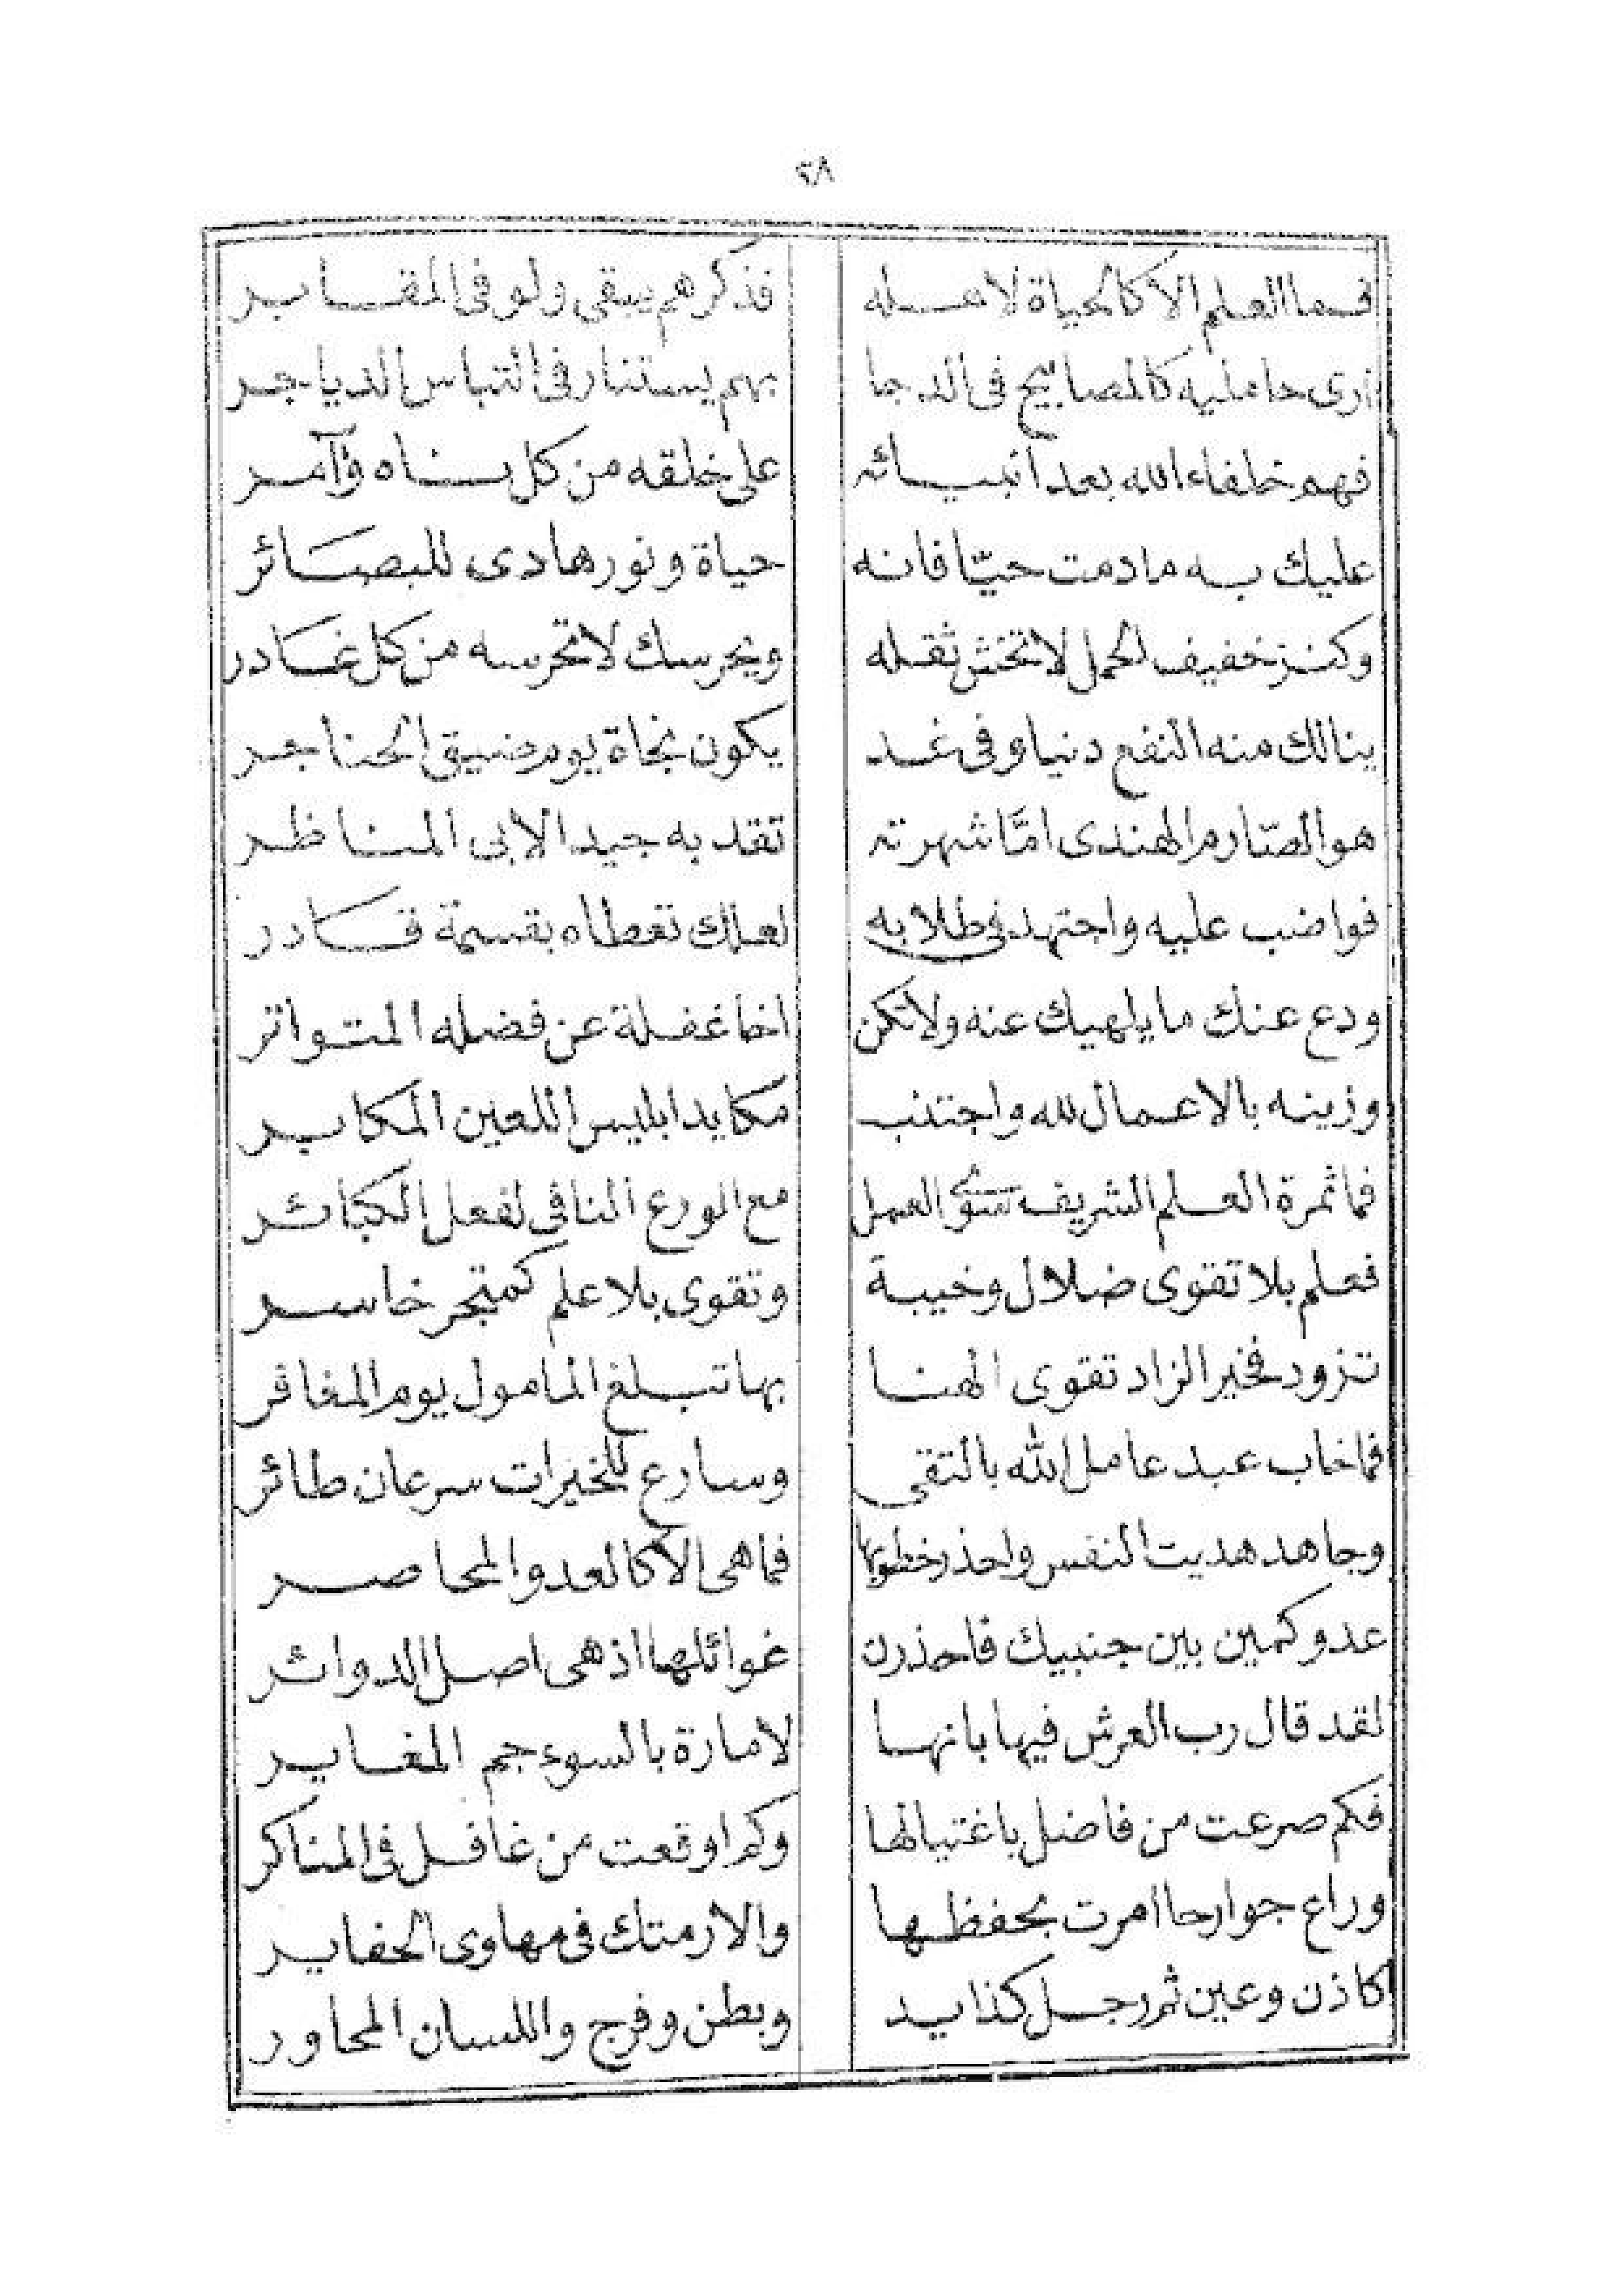 ٢٨
فما العلم الا كالحياة لاهله فذكرهم يبقى ولو فى المقابر
ارى حامليه كالمصابيح فى الدجا بهم يستنار فى التباس الدياجر
فهم خلفاء الله بعد أنبيائه على خلقه من كل ناه وآمر
عليك به ما دمت حيّا فانه حياة ونور هادى للبصائر
وكنز خفيف الحمل لا تخش ثقله ويحرسك لا تحرسه من كل غادر
ينالك منه النفع دنيا وفى غد يكون نجاة يوم ضيق الحناجر
هو الصّارم الهندى امّا شهرته تقد به جيد الابى المناظر
فواضب عليه واجتهد فى طلابه لعلك تعطاه بقسمة قادر
ودع عنك ما يلهيك عنه ولا تكن اخا غفلة عن فضله المتواتر
وزينه بالاعمال لله واجتنب مكايد ابليس اللعين المكابر
فما ثمرة العلم الشريف سوى العمل مع الورع النافى لفعل الكبائر
فعلم بلا تقوى ضلال وخيبة وتقوى بلا علم كمتجر خاسر
تزود فخير الزاد تقوى الهنا بها تبلغ المامول يوم المفاقر
فما خاب عبد عامل الله بالتقى وسارع للخيرات سرعان طائر
وجاهد هديت النفس واحذر خطوبها فما هى الا كالعدو المحاصر
عدو كمين بين جنبيك فاحذرن غوائلها اذ هى اصل الدوائر
لقد قال رب العرش فيها بانها لامارة بالسوء جم المغاير
فكم صرعت من فاضل باغتيالها وكم اوقعت من غافل فى المناكر
وراع جوارحا امرت بحفظها والا رمتك فى مهاوى الحفاير
كاذن وعين ثم رجل كذا يد وبطن وفرج واللسان المحاور